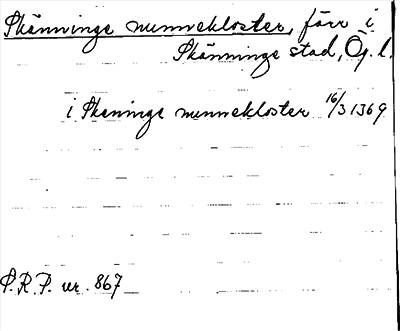 Skänninge nunnekloster, förr i
Skänninge stad, Ög. l.
i Skeninge nunnekloster 16/3 1369
S.R.P. nr. 867